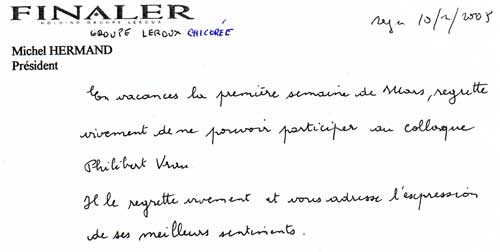 FINALER
HOLDING GROUPE LEROUX
GROUPE LEROUX CHICORÉE
reçu 10/2/2005
Michel HERMAND
Président
En vacances la première semaine de Mars, regrette
vivement de ne pouvoir participer au colloque
Philibert Vrau
Il le regrette vivement et vous adresse l'expression
de ses meilleurs sentiments.